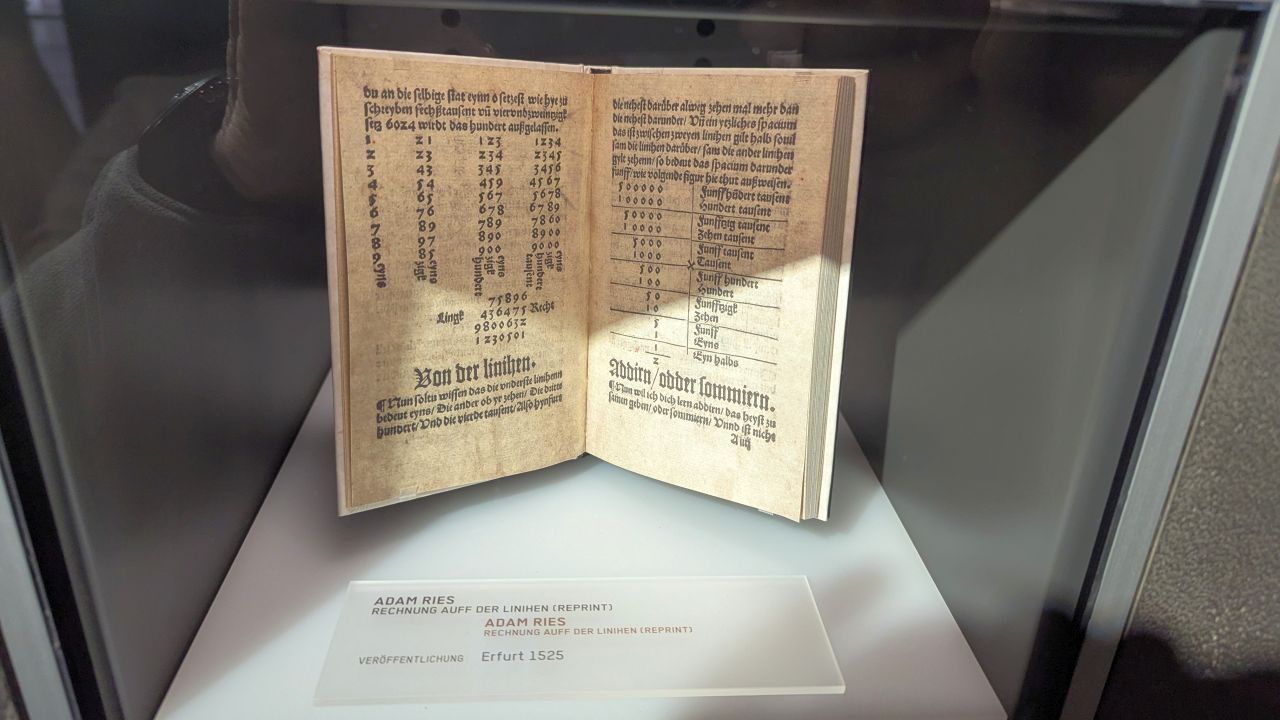 du an die selbige stat eynn 0 setzest wie hye zu
schreyben sechßtausent vñ viervndzweintzigk
setz 6024 wirdt das hundert außgelassen.
1 21 123 1234
2 23 234 2345
3 43 345 3456
4 54 459 4567
5 65 567 5678
6 76 678 6789
7 89 789 7860
8 97 890 8900
9 98 900 9000
eyns zigk eyns hundert zigk eyns tausent hundert zigk eyns
75896
Lingk 436475 Recht
9800632
1230501
Von der linihen.
¶ Nun soltu wissen das die vnderste linihenn
bedeut eyns/ Die ander ob yr zehen/ Die dritte
hundert/ Vnd die vierde tausent/ Also hynfure
die nehest darüber alweg zehen mal mehr dan
die nehest darunder/ Vñ ein yetzliches spacium
das ist zwischen zweyen linihen gilt halb souil
sam die linihen darüber/ sam die ander linihen
gylt zehenn/ so bedeut das spacium darunder
funff/ wie volgende figur hie thut außweisen.
500000 Funffhũdert tausent
100000 Hundert tausent
50000 Funfftzig tausent
10000 Zehen tausent
5000 Funff tausent
1000 X Tausent
500 Funff hundert
100 Hundert
50 Funfftzigk
10 Zehen
5 Funff
1 Eyns
1
2 Eyn halbs
Addirn/ odder sommiern.
¶ Nun wil ich dich lern addirn/ das heyst zu
samen geben/ oder sommiern/ Vnnd ist nicht
Auß
ADAM RIES
RECHNUNG AUFF DER LINIHEN (REPRINT)
ADAM RIES
RECHNUNG AUFF DER LINIHEN (REPRINT)
VERÖFFENTLICHUNG Erfurt 1525